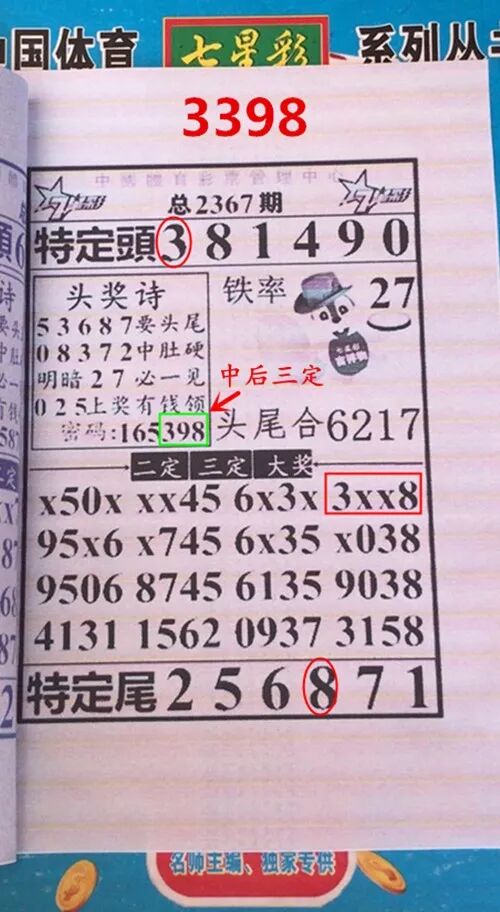 中国体育 七星彩 系列丛书
3398
中國體育彩票管理中心
总2367期
特定頭 3 8 1 4 9 0
头奖诗
53687要头尾
08372中肚硬
明暗27必一见
025上奖有钱领
密码:165398
铁率 27
中后三定
头尾合6217
二定 三定 大奖
x50x xx45 6x3x 3xx8
95x6 x745 6x35 x038
9506 8745 6135 9038
4131 1562 0937 3158
特定尾 2 5 6 8 7 1
名师主编、独家专供